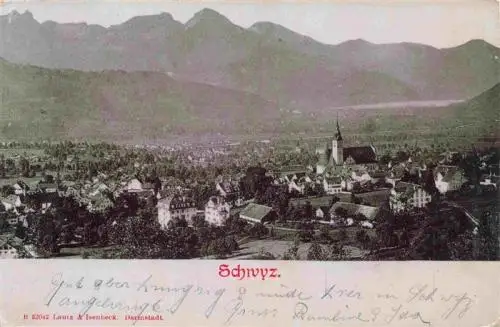 Schwyz.
Gut aber hungrig & müde hier in Schwyz
angelangt. Gruss
B 82042 Lautz & Isenbeck. Darmstadt.